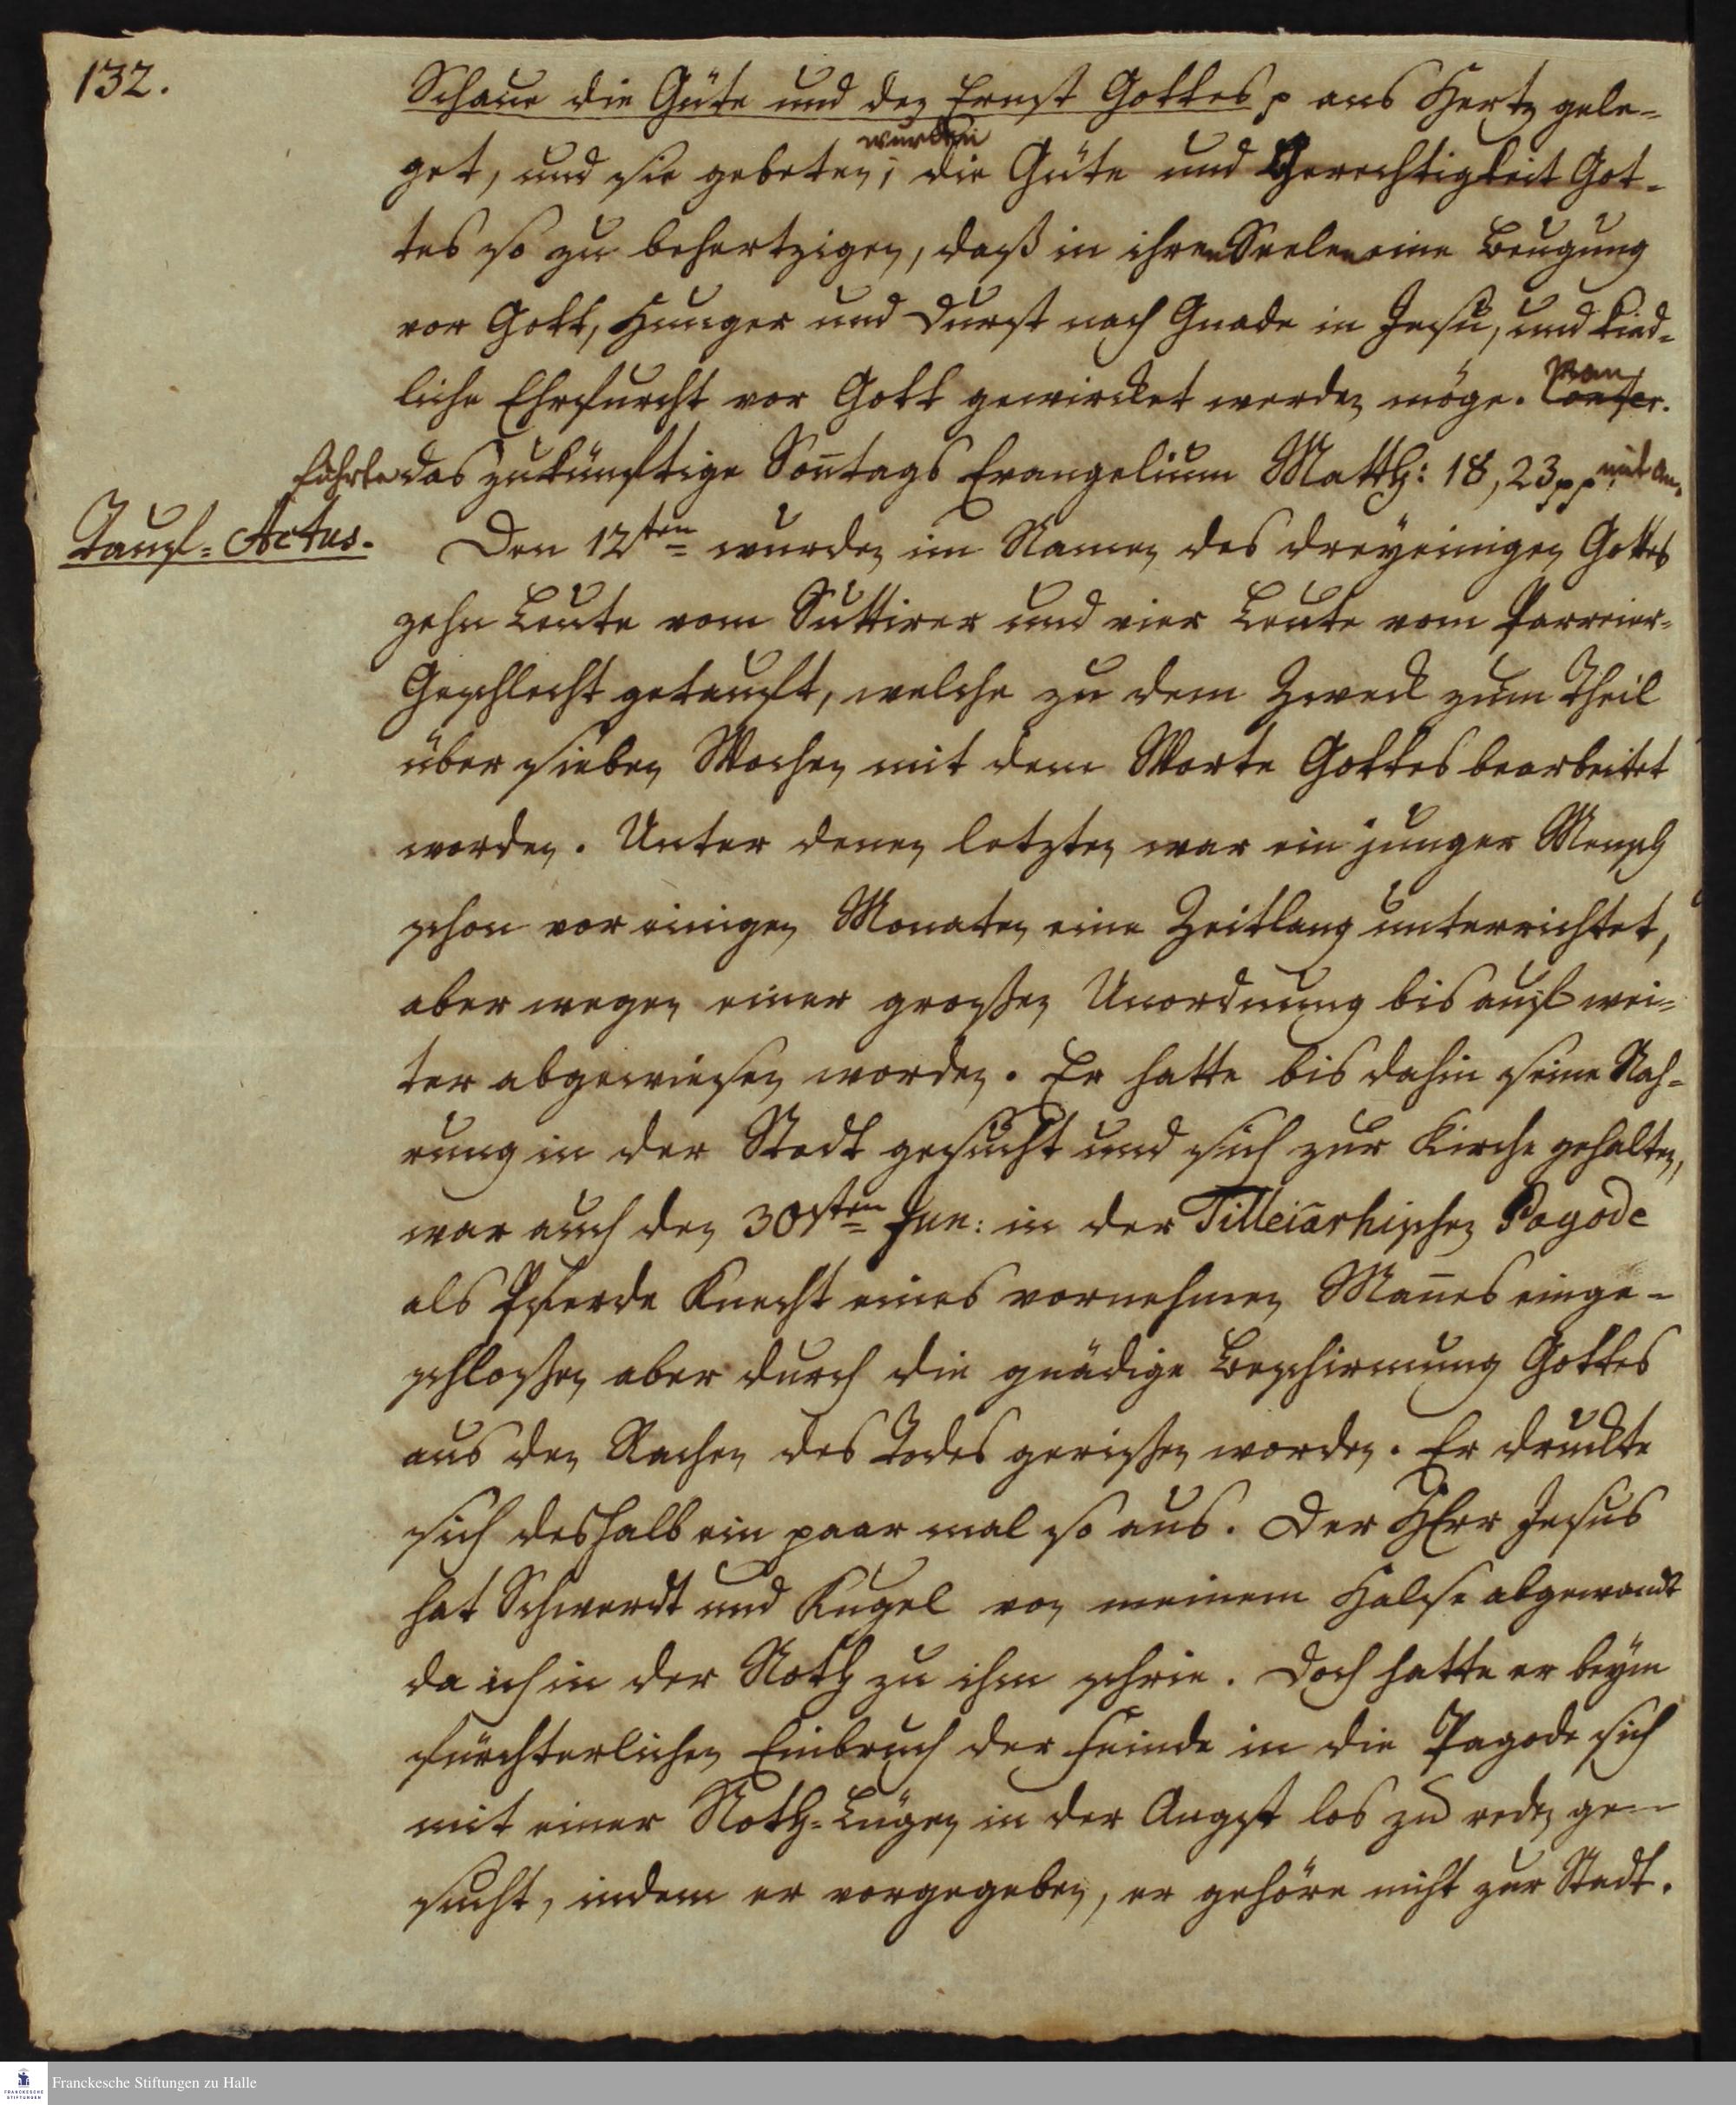 132.
Schaue die Güte und den Ernst Gottes p ans Hertz gele-
wurden
get, und sie gebeten, die Güte und Gerechtigkeit Got-
tes so zu behertzigen, daß in ihren Seelen eine Beugung
vor Gott, Hunger und Durst nach Gnade in Jesu, und kind-
liche Ehrfurcht vor Gott gewircket werden möge. Confer.
Man
führte das zukünftige Soñtags Evangelium Matth: 18, 23 pp mit an.
Tauf-Actus.
Den 12ten wurden im Namen des dreyeinigen Gottes
zehn Leute vom Suttirer und vier Leute vom Parreier-
Geschlecht getauft, welche zu dem Zweck zum Theil
über sieben Wochen mit dem Worte Gottes bearbeitet
worden. Unter denen letzten war ein junger Mensch
schon vor einigen Monaten eine Zeitlang unterrichtet,
aber wegen einer großen Unordnung bis auf wei-
ter abgewiesen worden. Er hatte bis dahin seine Nah-
rung in der Stadt gesucht und sich zur Kirche gehalten,
war auch den 30sten Jun: in der Tilleiarhischen Pagode
als Pferde Knecht eines vornehmen Mañes einge-
schloßen aber durch die gnädige Beschirmung Gottes
aus den Rachen des Todes gerißen worden. Er druckte
sich deshalb ein paar mal so aus. Der HErr Jesus
hat Schwerdt und Kugel von meinem Halse abgewandt
da ich in der Noth zu ihm schrie. Doch hatte er beym
fürchterlichen Einbruch der Feinde in die Pagode sich
mit einer Noth-Lügen in der Angst los zu reden ge-
sucht, indem er vorgegeben, er gehöre nicht zur Stadt.
FRANCKESCHE
STIFTUNGEN
Franckesche Stiftungen zu Halle